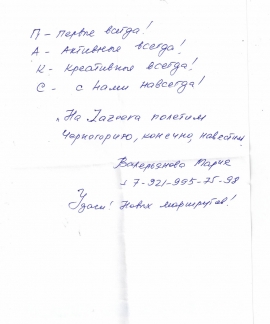 П - первые всегда!
А - Активные всегда!
К - Креативные всегда!
С - с нами навсегда!
На Jazoora полетим
Черногорию, конечно, навестим.
Валерьянова Мария
+7-921-995-75-98
Удачи! Новых маршрутов!